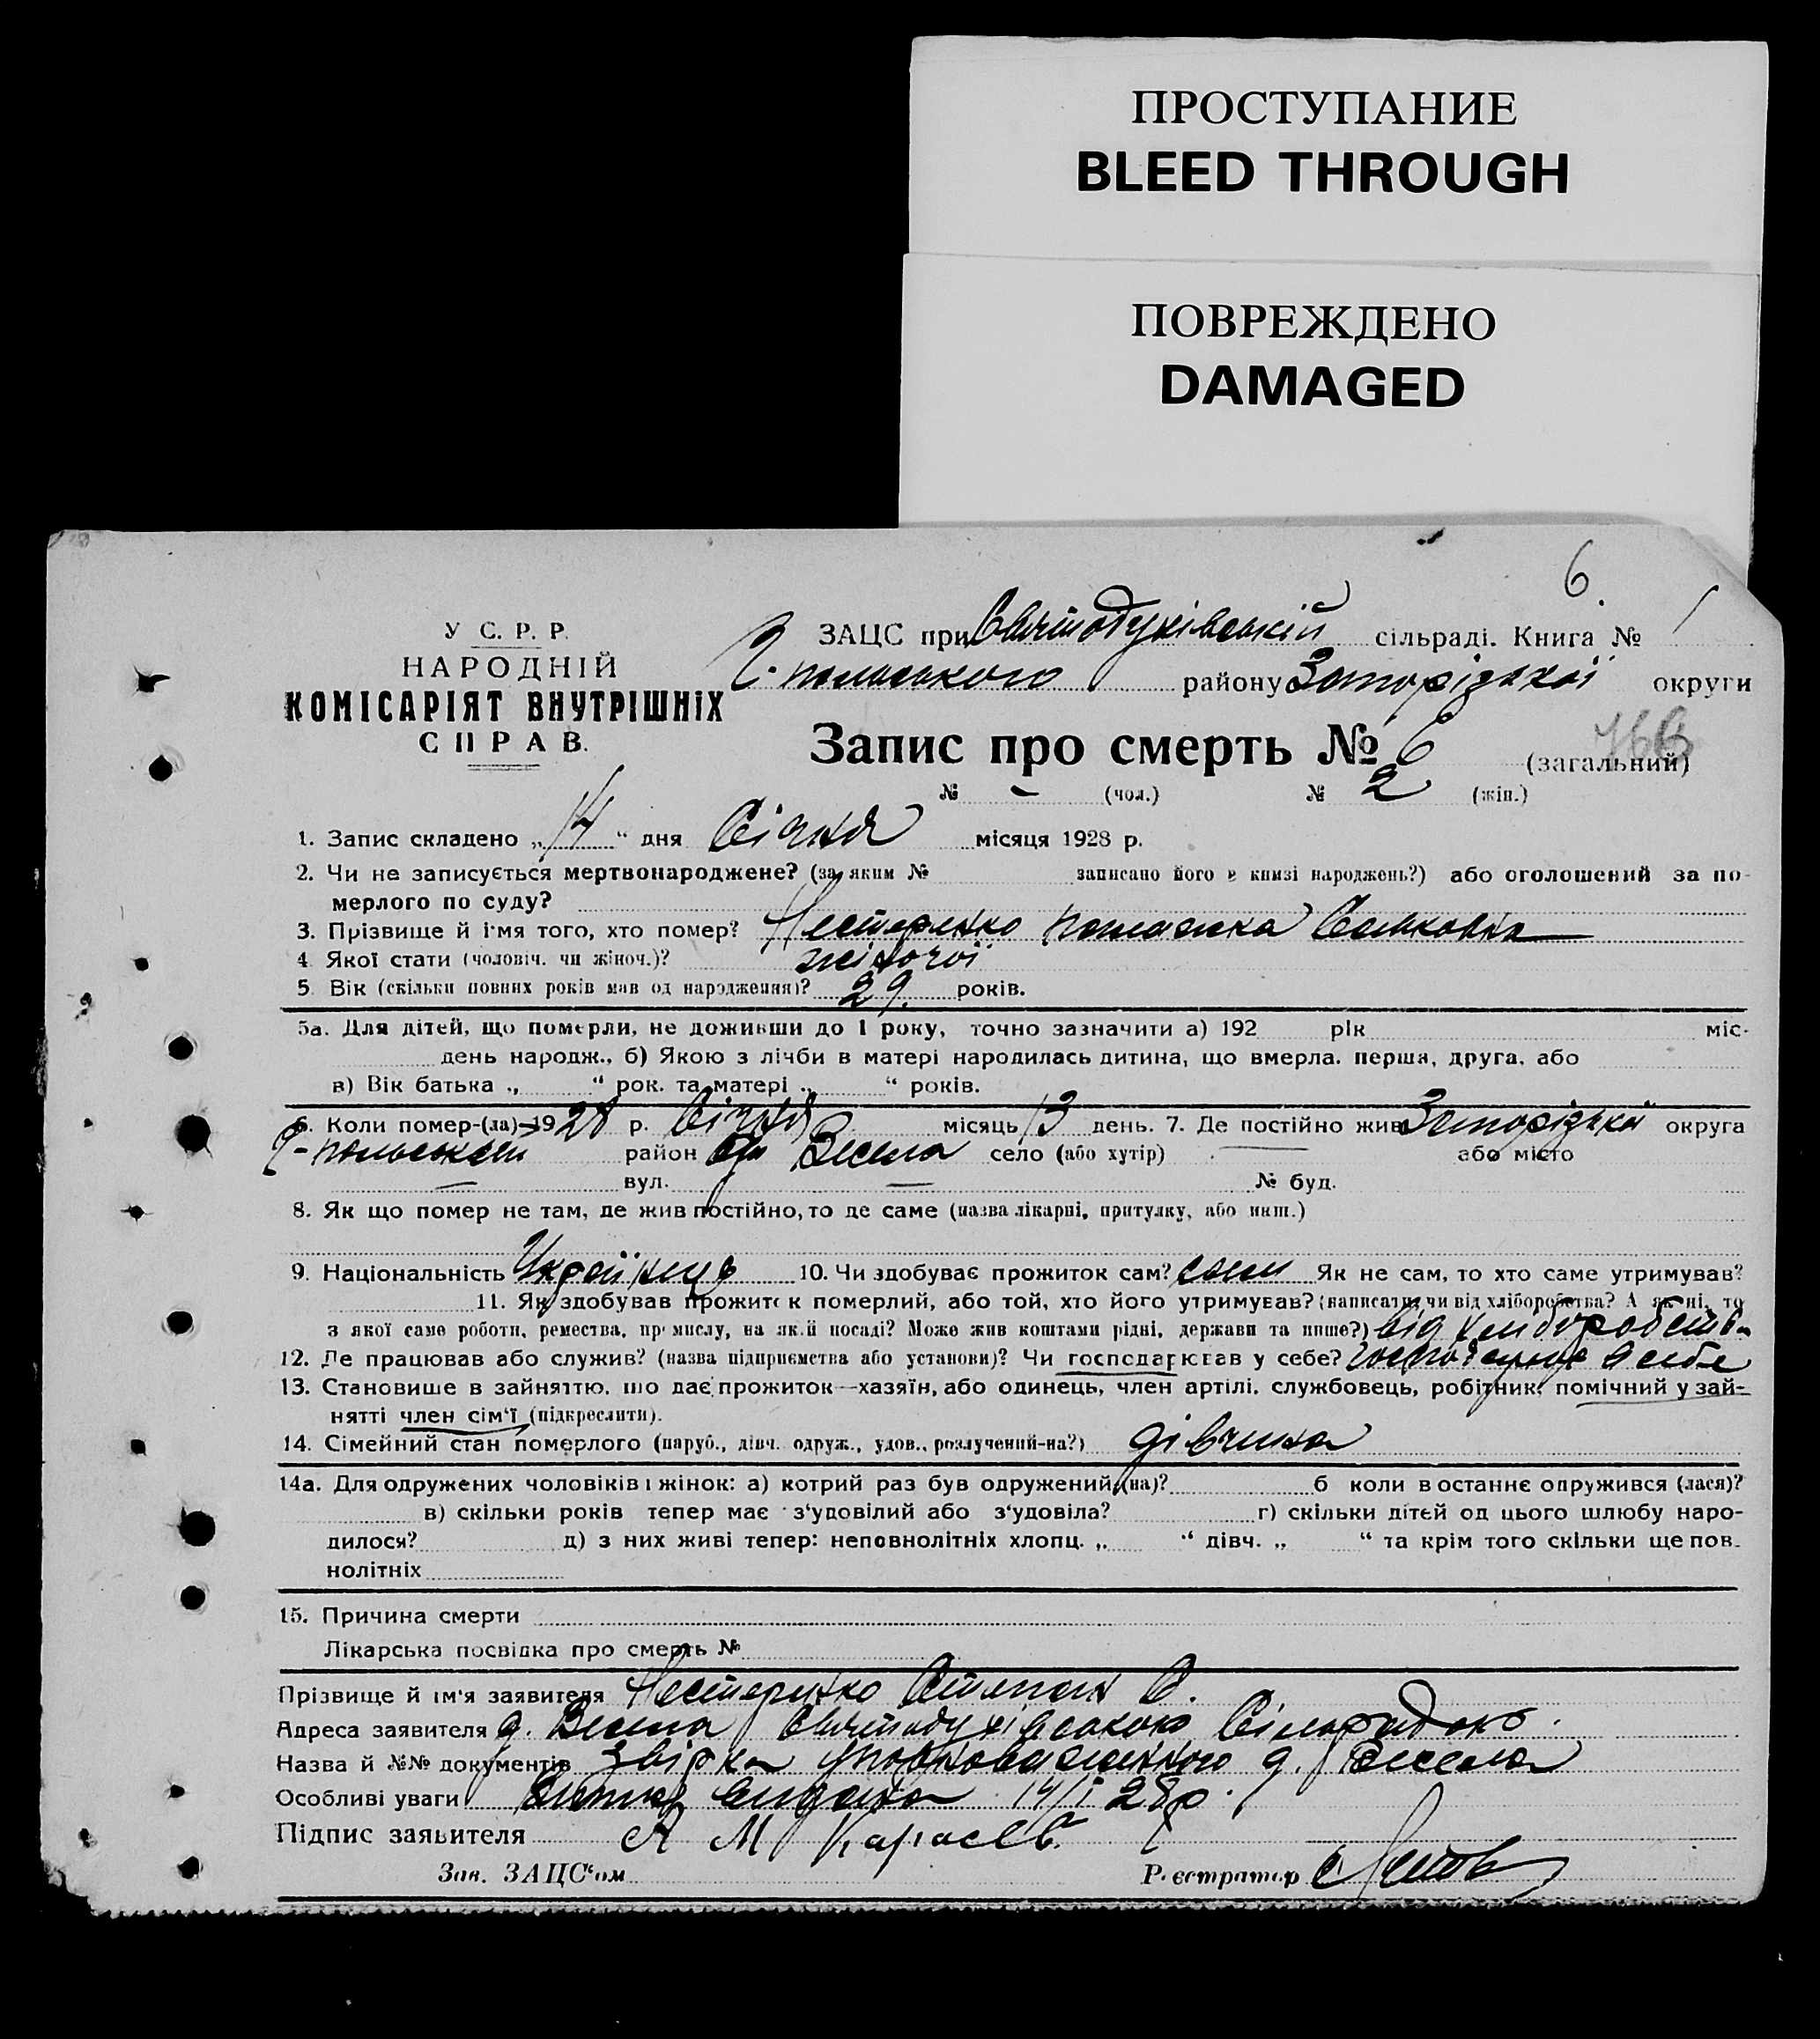 ПРОСТУПАНИЕ
BLEED THROUGH
ПОВРЕЖДЕНО
DAMAGED
6.
У С. Р. Р.
НАРОДНІЙ
КОМІСАРІЯТ ВНУТРІШНІХ
СПРАВ.
ЗАЦС при Святодухівській сільраді. Книга № 1
Г-польського району Запорізької округи
Запис про смерть № 6 (загальний)
№ – (чол.) № 2 (жін.)
1. Запис складено „14“ дня Січня місяця 1928 р.
2. Чи не записується мертвонароджене? (за яким № записано його в книзі народжень?) або оголошений за по-
мерлого по суду?
3. Прізвище й ім'я того, хто помер? Нестеренко
4. Якої стати (чоловіч. чи жіноч.)? жіночої
5. Вік (скільки повних років мав од народження)? 29. років.
5а. Для дітей, що померли, не доживши до 1 року, точно зазначити а) 192 рік міс.
день народж., б) Якою з лічби в матері народилась дитина, що вмерла. перша, друга, або
в) Вік батька „ “ рок. та матері „ “ років.
6. Коли помер-(ла) 1928 р. Січня місяць 13 день. 7. Де постійно жив Запорізької округа
Г-польський район д. Весела село (або хутір) — або місто
— вул. — № буд.
8. Як що помер не там, де жив постійно, то де саме (назва лікарні, притулку, або инш.)
9. Національність Українці 10. Чи здобував прожиток сам? сам Як не сам, то хто саме утримував?
11. Як здобував прожиток померлий, або той, хто його утримував? (написати чи від хліборобства? А як ні, то
з якої саме роботи, ремества, промислу, на якій посаді? Може жив коштами рідні, держави та инше?) від хліборобств.
12. Де працював або служив? (назва підприємства або установи)? Чи господарював у себе? господарює в себе
13. Становище в зайняттю, що дає прожиток—хазяїн, або одинець, член артілі, службовець, робітник, помічний у зай-
нятті член сім‘ї (підкреслити).
14. Сімейний стан померлого (паруб., дівч. одруж., удов., розлучений-на?) дівчина
14а. Для одружених чоловіків і жінок: а) котрий раз був одружений,(на)? б коли в останнє одружився (лася)?
в) скільки років тепер має з‘удовілий або з‘удовіла? г) скільки дітей од цього шлюбу наро-
дилося? д) з них живі тепер: неповнолітніх хлопц. „ “ дівч. „ “ та крім того скільки ще пов-
нолітніх
15. Причина смерти
Лікарська посвідка про смерть №
Прізвище й ім'я заявителя Нестеренко Степан С.
Адреса заявителя д. Весела Святодухівською Сільрадою.
Назва й №№ документів Звірка уповноваженного д. Весела
Особливі уваги видана 14/I 28р.
Підпис заявителя А М Карасев.
Зав. ЗАЦС‘ом Реєстратор